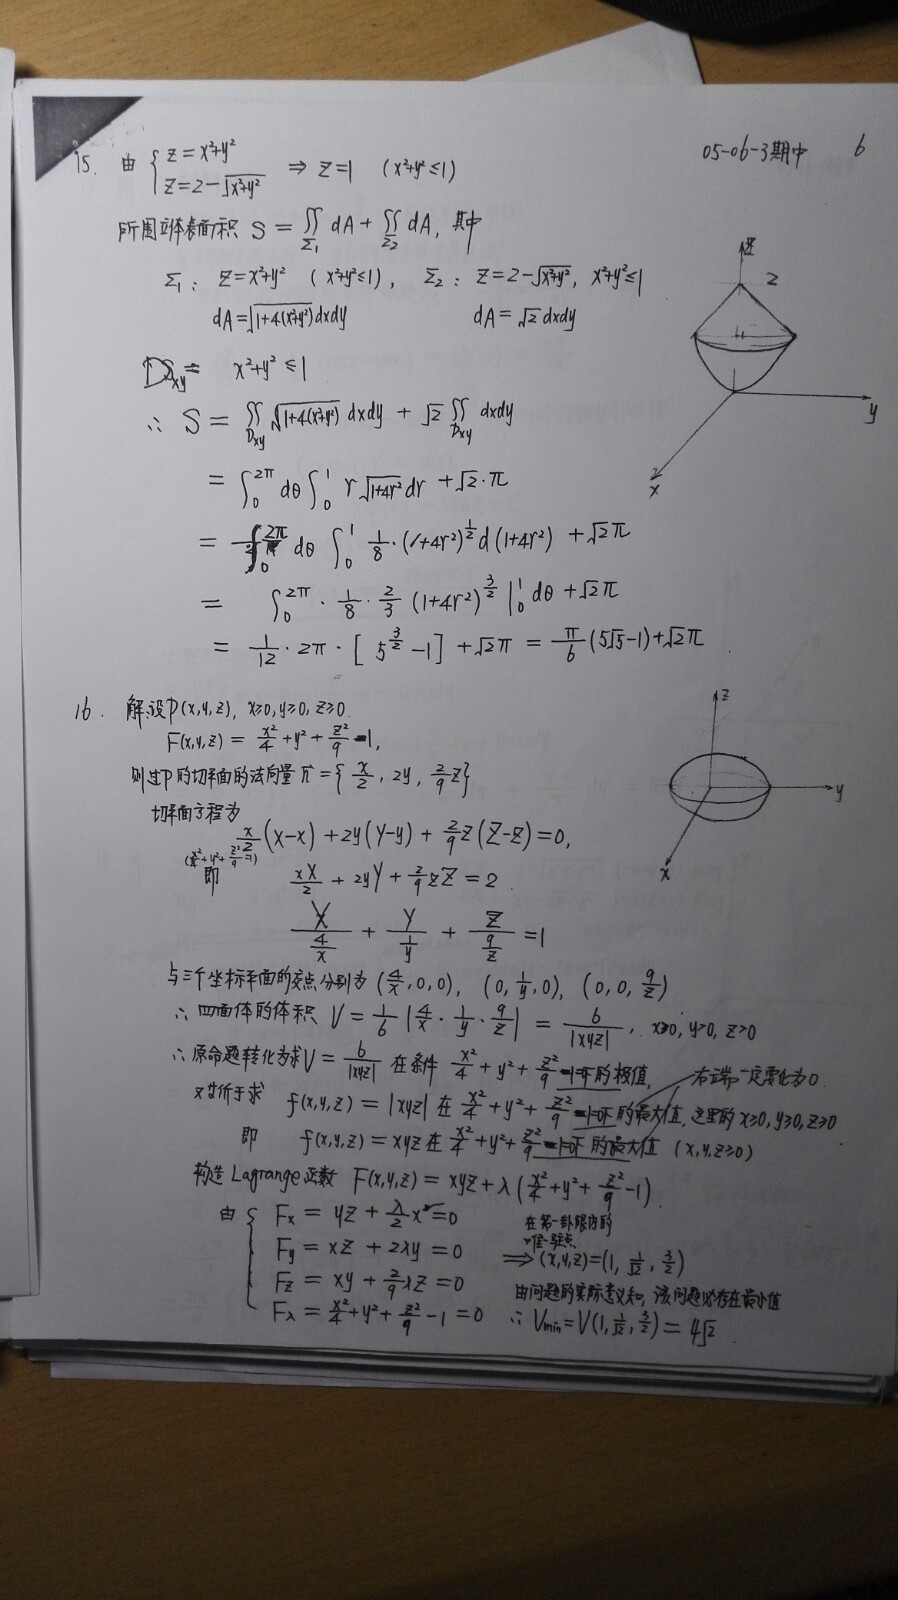 05-06-3期中 6
15. 由 { z=x²+y² z=2-√(x²+y²) ⇒ z=1 (x²+y²≤1)
所围立体表面积 S = ∬_Σ₁ dA + ∬_Σ₂ dA, 其中
Σ₁: z=x²+y² (x²+y²≤1), Σ₂: z=2-√(x²+y²), x²+y²≤1
dA=√(1+4(x²+y²))dxdy dA=√2 dxdy
D_xy= x²+y²≤1
∴ S = ∬_Dxy √(1+4(x²+y²)) dxdy + √2 ∬_Dxy dxdy
= ∫₀^2π dθ ∫₀^1 r√(1+4r²) dr + √2·π
= ∫₀^2π dθ ∫₀^1 1/8·(1+4r²)^(1/2) d(1+4r²) + √2π
= ∫₀^2π · 1/8 · 2/3 (1+4r²)^(3/2) |₀^1 dθ + √2π
= 1/12 · 2π · [5^(3/2) -1] + √2π = π/6 (5√5-1)+√2π.
z
2
y
x
16. 解:设P(x,y,z), x≥0, y≥0, z≥0.
F(x,y,z) = x²/4 + y² + z²/9 -1,
则过P的切平面的法向量 n⃗ = {x/2, 2y, 2/9 z}
切平面方程为
x/2 (X-x) + 2y(Y-y) + 2/9 z(Z-z) = 0,
(x²/4+y²+z²/9=1)
即 xX/2 + 2yY + 2/9 zZ = 2
X/(4/x) + Y/(1/y) + Z/(9/z) = 1
z
y
x
与三个坐标平面的交点分别为 (4/x, 0, 0), (0, 1/y, 0), (0, 0, 9/z)
∴ 四面体的体积 V = 1/6 |4/x · 1/y · 9/z| = 6/|xyz|, x>0, y>0, z>0
∴ 原命题转化为求 V = 6/|xyz| 在条件 x²/4 + y² + z²/9 -1=0下的极值, 右端一定要化为0.
又等价于求 f(x,y,z) = |xyz| 在 x²/4 + y² + z²/9 -1=0下的最大值, 这里的 x≥0, y≥0, z≥0
即 f(x,y,z) = xyz 在 x²/4 + y² + z²/9 -1=0下的最大值 (x,y,z≥0)
构造 Lagrange 函数 F(x,y,z) = xyz + λ(x²/4 + y² + z²/9 -1)
由 { Fx = yz + λ/2 x = 0
Fy = xz + 2λy = 0
Fz = xy + 2/9 λz = 0
Fλ = x²/4 + y² + z²/9 - 1 = 0
在第一卦限内的
唯一驻点
⇒ (x,y,z) = (1, 1/√2, 3/2)
由问题的实际意义知, 该问题必存在最小值
∴ Vmin = V(1, 1/√2, 3/2) = 4√2.